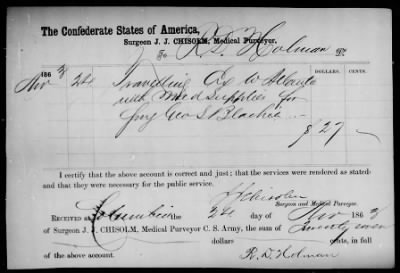 The Confederate States of America,
Surgeon J. J. CHISOLM, Medical Purveyor.
To R. D. Holman Dr.
186 3 DOLLARS. CENTS.
Nov 24 Travelling Ex to Atlanta
with Med Supplies for
Surg Geo S Blackie
$ 27 —
I certify that the above account is correct and just; that the services were rendered as stated-
and that they were necessary for the public service.
JJ Chisolm
Surgeon and Medical Purveyor.
RECEIVED AT Columbia the 24 day of Nov 186 3
of Surgeon J. J. CHISOLM, Medical Purveyor C. S. Army, the sum of twenty seven
dollars cents, in full
of the above account. R. D. Holman